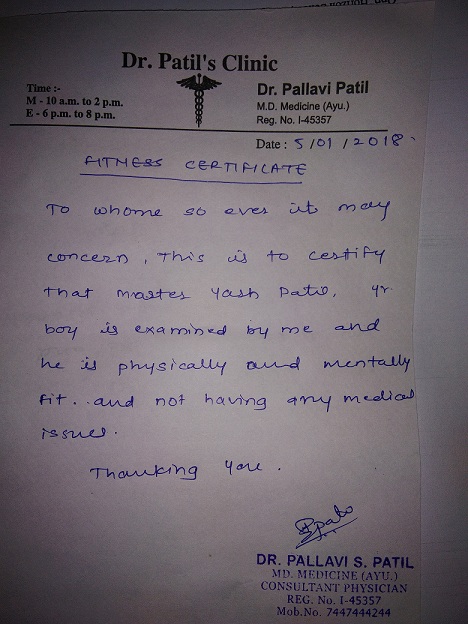 Dr. Patil's Clinic
Time :-
M - 10 a.m. to 2 p.m.
E - 6 p.m. to 8 p.m.
Dr. Pallavi Patil
M.D. Medicine (Ayu.)
Reg. No. I-45357
Date : 5/01/2018
FITNESS CERTIFICATE
To whome so ever it may
concern, This is to certify
that master Yash Patil, yr
boy is examined by me and
he is physically and mentally
fit.. and not having any medical
issues.
Thanking you.
DR. PALLAVI S. PATIL
MD. MEDICINE (AYU.)
CONSULTANT PHYSICIAN
REG. No. I-45357
Mob.No. 7447444244